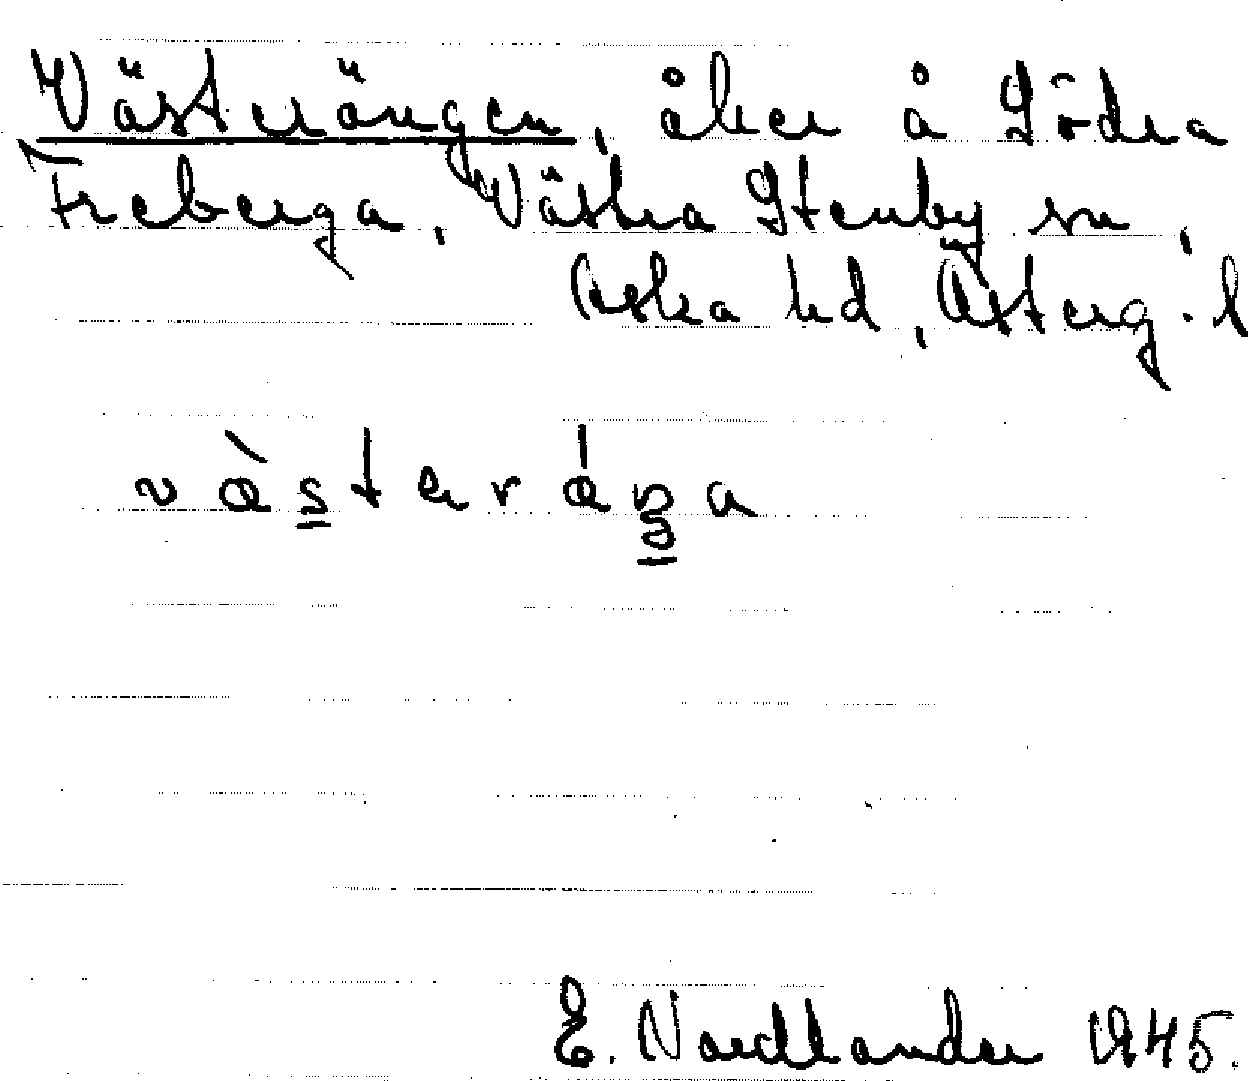 Västerängen, åker å Södra
Freberga, Västra Stenby sn,
Aska hd, Österg. l
västeráŋa
E. Nordlander 1945.